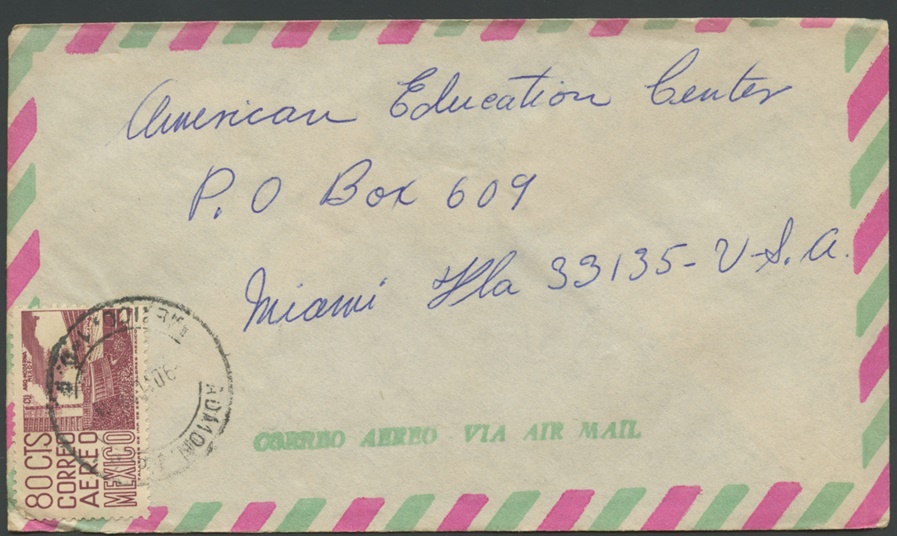 American Education Center
P. O Box 609
Miami Fla 33135-U.S.A.
CORREO AEREO VIA AIR MAIL
80 CTS
CORREO
AEREO
MEXICO
MEXICO
ADMON